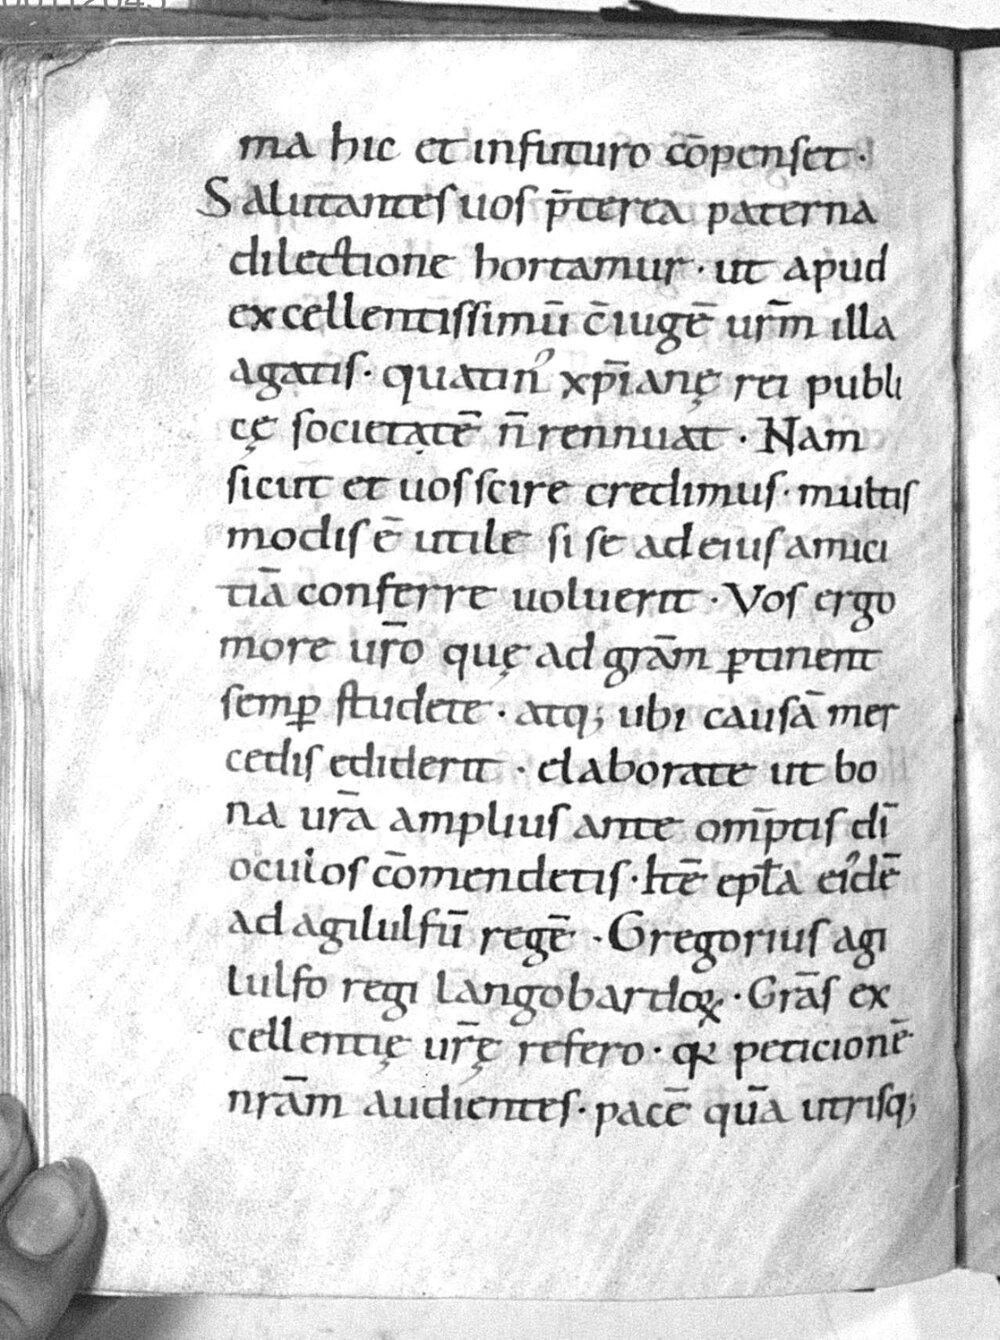 ma hic et infuturo cōpenset·
Salutantes uos p̄terea paterna
dilectione hortamur· ut apud
excellentissimū c̄iugē ur̄m illa
agatis· quatin᾽ xp̄ianę rei publi
cę societatē n̄ rennuat · Nam
sicut et uos scire credimus· multis
modis ē utile si se ad eius amici
tiā conferre uoluerit · Vos ergo
more ur̄o quę ad grām ꝑtinent
semꝑ studete · atq; ubi causā mer
cedis ediderit · elaborate ut bo
na ur̄a amplius ante om̄ptis dī
oculos cōmendetis· Itē epl̄a ei᾽dē
ad agilulfū regē · Gregorius agi
lulfo regi langobardoꝝ · Grās ex
cellentię ur̄ę refero · qꝛ peticionē
nrām audientes· pacē quā utrisq;